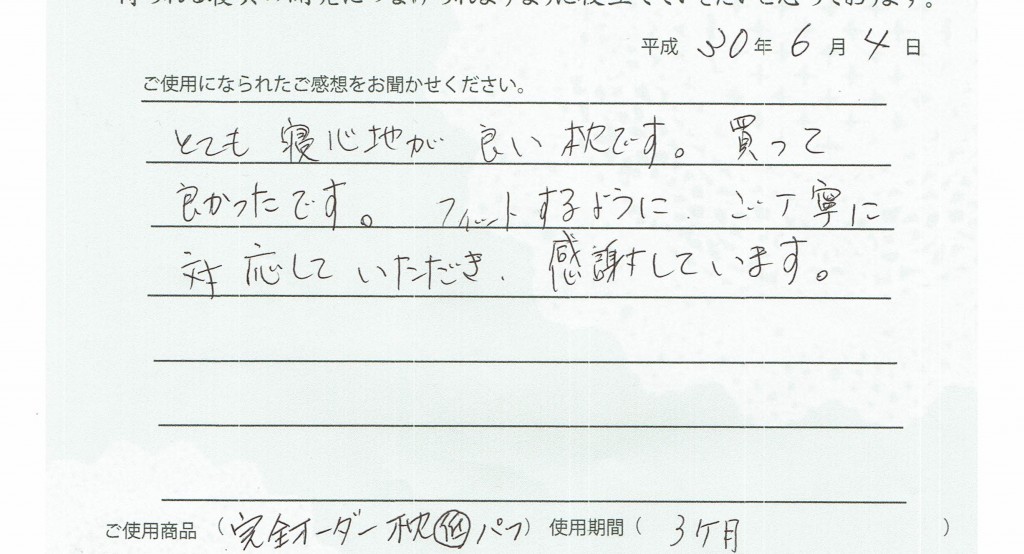 平成 30年 6月 4日
ご使用になられたご感想をお聞かせください。
とても 寝心地が 良い 枕です。買って
良かったです。 フィットするように ご丁寧に
対応して いただき、感謝しています。
ご使用商品 (完全オーダー枕㊤パフ) 使用期間 ( 3ケ月 )